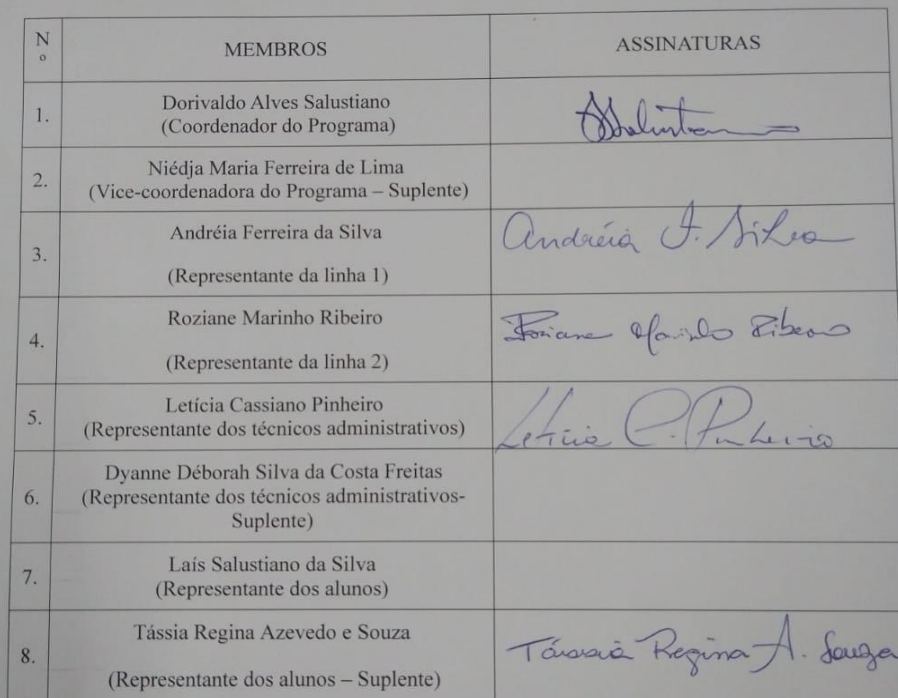 Nº MEMBROS ASSINATURAS
1. Dorivaldo Alves Salustiano
(Coordenador do Programa)
2. Niédja Maria Ferreira de Lima
(Vice-coordenadora do Programa – Suplente)
3. Andréia Ferreira da Silva
Andréia F. Silva
(Representante da linha 1)
4. Roziane Marinho Ribeiro
Roziane Marinho Ribeiro
(Representante da linha 2)
5. Letícia Cassiano Pinheiro
(Representante dos técnicos administrativos)
Letícia C. Pinheiro
6. Dyanne Déborah Silva da Costa Freitas
(Representante dos técnicos administrativos-
Suplente)
7. Laís Salustiano da Silva
(Representante dos alunos)
8. Tássia Regina Azevedo e Souza
Tássia Regina A. Souza
(Representante dos alunos – Suplente)